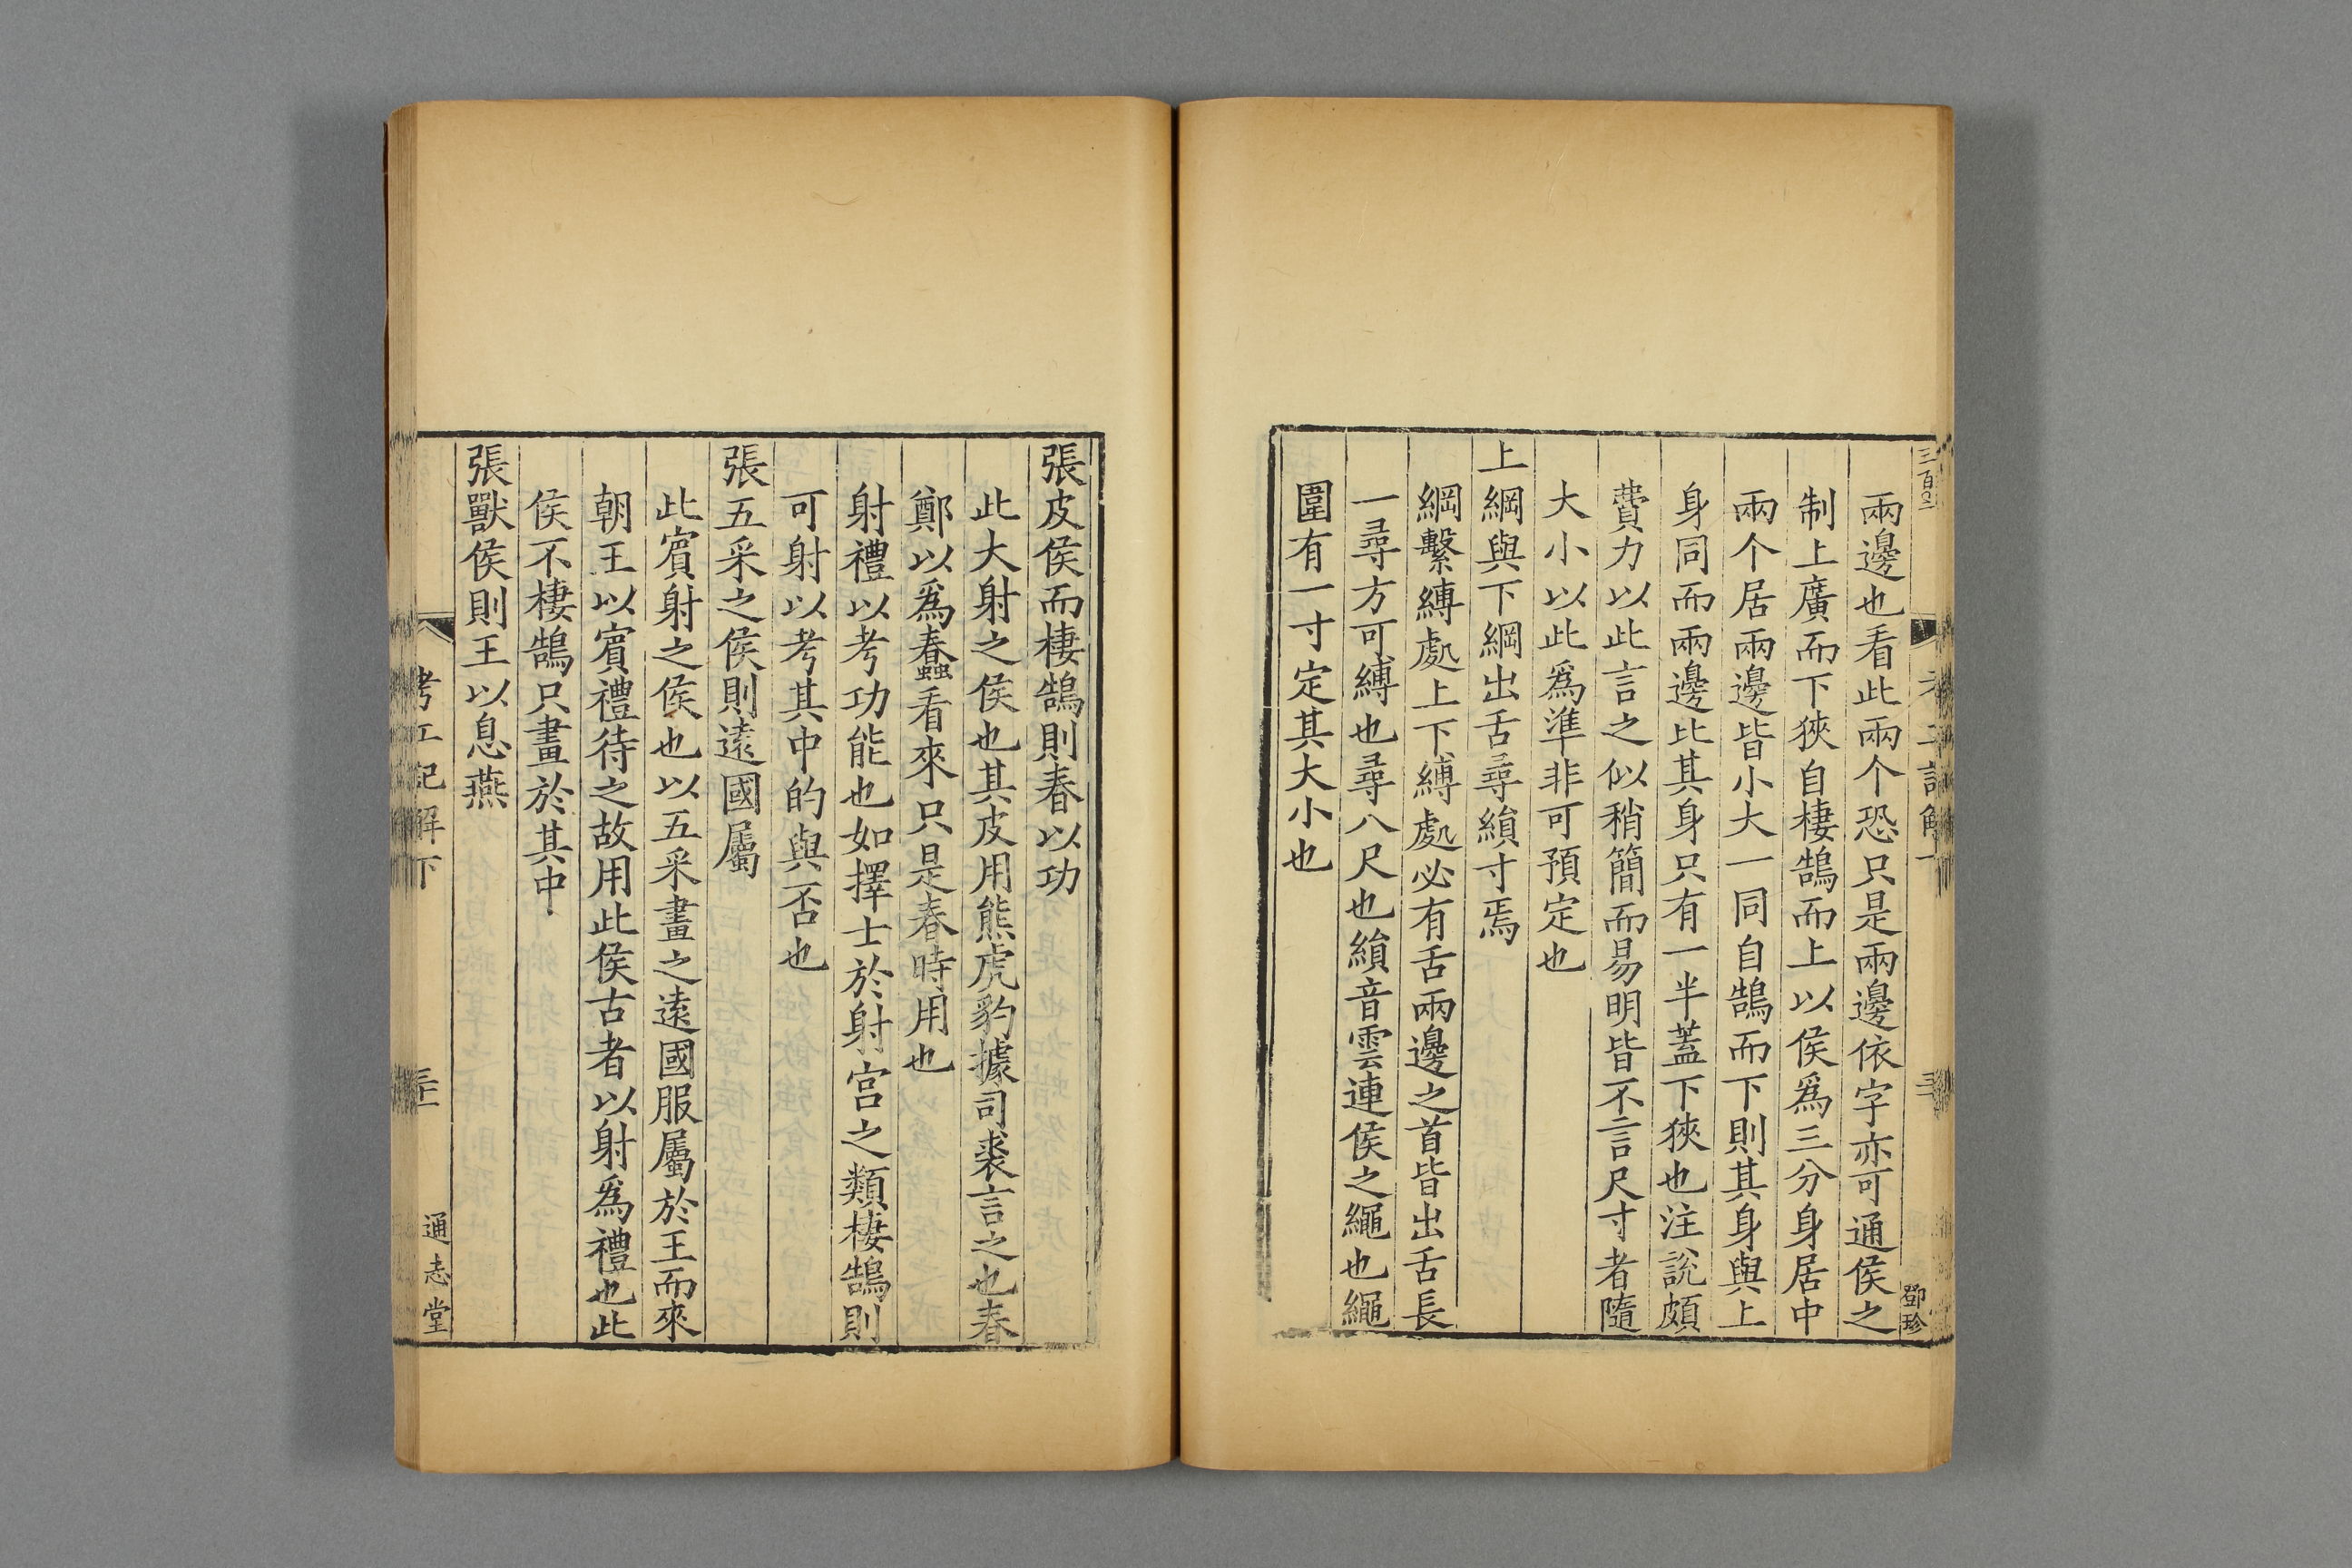 兩邊也看此兩个恐只是兩邊依字亦可通侯之
制上廣而下狹自棲鵠而上以侯爲三分身居中
兩个居兩邊皆小大一同自鵠而下則其身與上
身同而兩邊比其身只有一半蓋下狹也注說頗
費力以此言之似稍簡而易明皆不言尺寸者隨
大小以此爲準非可預定也
上綱與下綱出舌尋縜寸焉
綱繫縛處上下縛處必有舌兩邊之首皆出舌長
一尋方可縛也尋八尺也縜音雲連侯之繩也繩
圍有一寸定其大小也
鄧珍
張皮侯而棲鵠則春以功
此大射之侯也其皮用熊虎豹據司裘言之也春
鄭以爲蠢看來只是春時用也
射禮以考功能也如擇士於射宮之類棲鵠則
可射以考其中的與否也
張五采之侯則遠國屬
此賔射之侯也以五采畫之遠國服屬於王而來
朝王以賔禮待之故用此侯古者以射爲禮也此
侯不棲鵠只畫於其中
張獸侯則王以息燕
考工記解下
通志堂